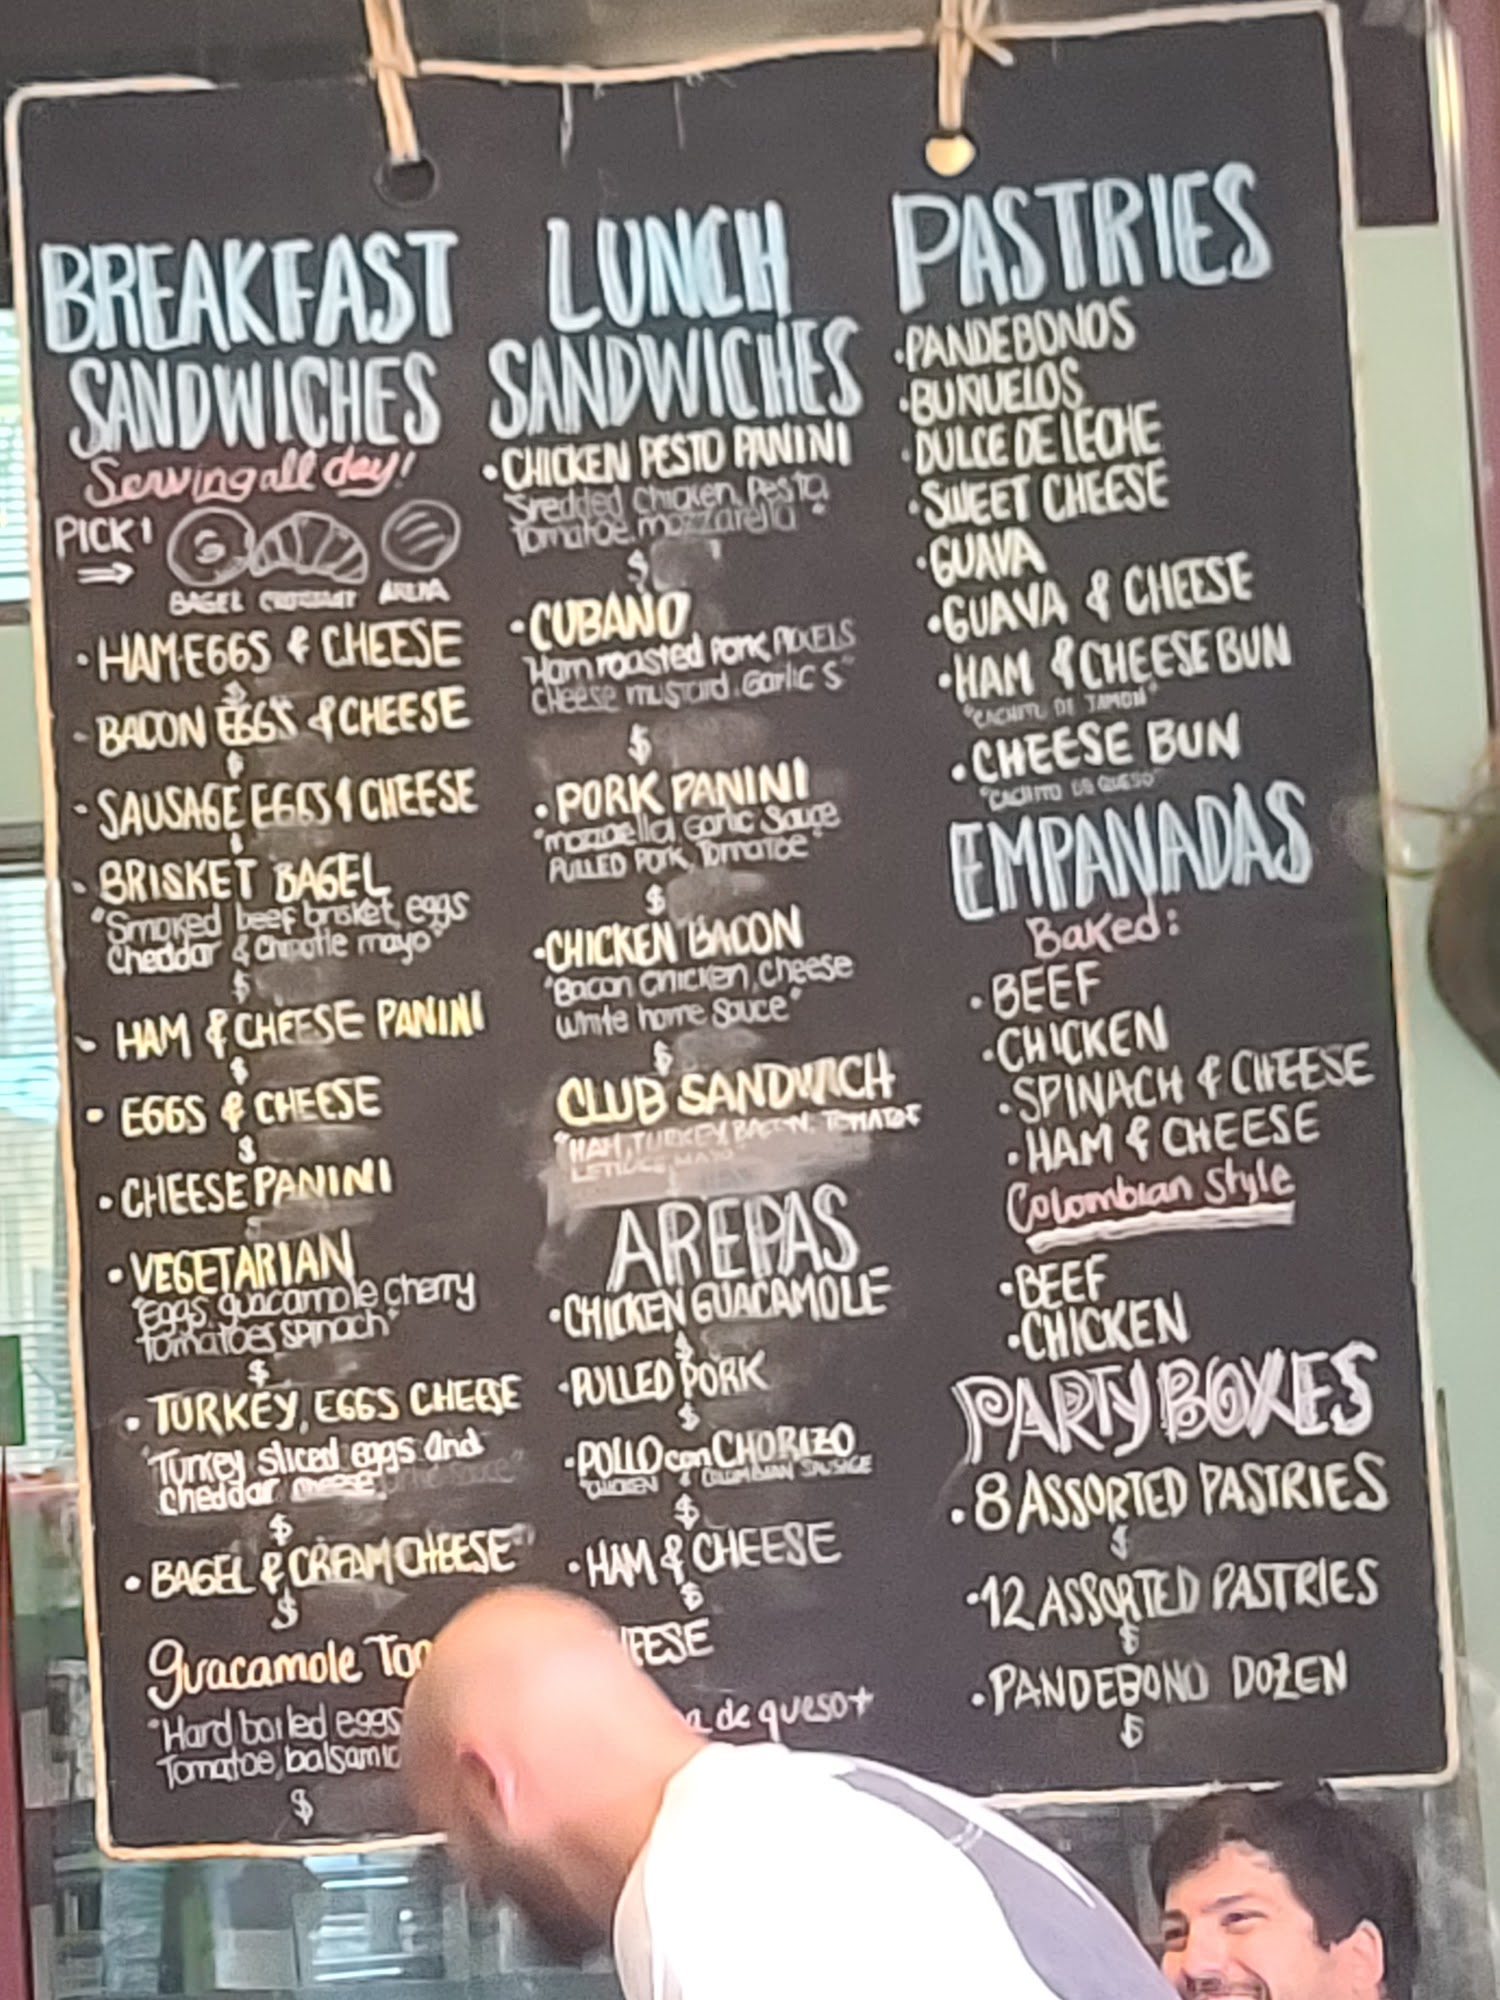 BREAKFAST
SANDWICHES
Serving all day!
PICK!
BAGEL CROISSANT AREPA
HAM EGGS & CHEESE
$
BACON EGGS & CHEESE
$
SAUSAGE EGGS & CHEESE
$
BRISKET BAGEL
"Smoked beef brisket, eggs
Cheddar & Chipotle mayo"
$
HAM & CHEESE PANINI
$
EGGS & CHEESE
$
CHEESE PANINI
VEGETARIAN
"Eggs, guacamole cherry
Tomatoes spinach"
$
TURKEY, EGGS CHEESE
"Turkey sliced eggs and
Cheddar cheese
$
BAGEL & CREAM CHEESE
$
guacamole
"Hard boiled eggs
Tomatoe, balsamic
$
LUNCH
SANDWICHES
CHICKEN PESTO PANINI
"Sredded Chicken, Pesto
Tomatoe, mozzarella"
$
CUBANO
"Ham roasted Pork, PICKELS
Cheese mustard, Garlic S"
$
PORK PANINI
"mozzaella Garlic Sauce
PULLED PORK, Tomatoe"
$
CHICKEN BACON
"Bacon Chicken, Cheese
White home Sauce"
$
CLUB SANDWICH
"HAM, TURKEY, BACON, TOMATOE
LETTUCE, MAYO"
AREPAS
CHICKEN GUACAMOLE
$
PULLED PORK
$
POLLO con CHORIZO
CHICKEN & COLOMBIAN SAUSAGE
$
HAM & CHEESE
$
de queso+
PASTRIES
PANDEBONOS
BUNUELOS
DULCE DE LECHE
SWEET CHEESE
GUAVA
GUAVA & CHEESE
HAM & CHEESE BUN
"CACHITO DE JAMON"
CHEESE BUN
"CACHITO DE QUESO"
EMPANADAS
Baked:
BEEF
CHICKEN
SPINACH & CHEESE
HAM & CHEESE
Colombian Style
BEEF
CHICKEN
PARTY BOXES
8 ASSORTED PASTRIES
$
12 ASSORTED PASTRIES
$
PANDEBONO DOZEN
$